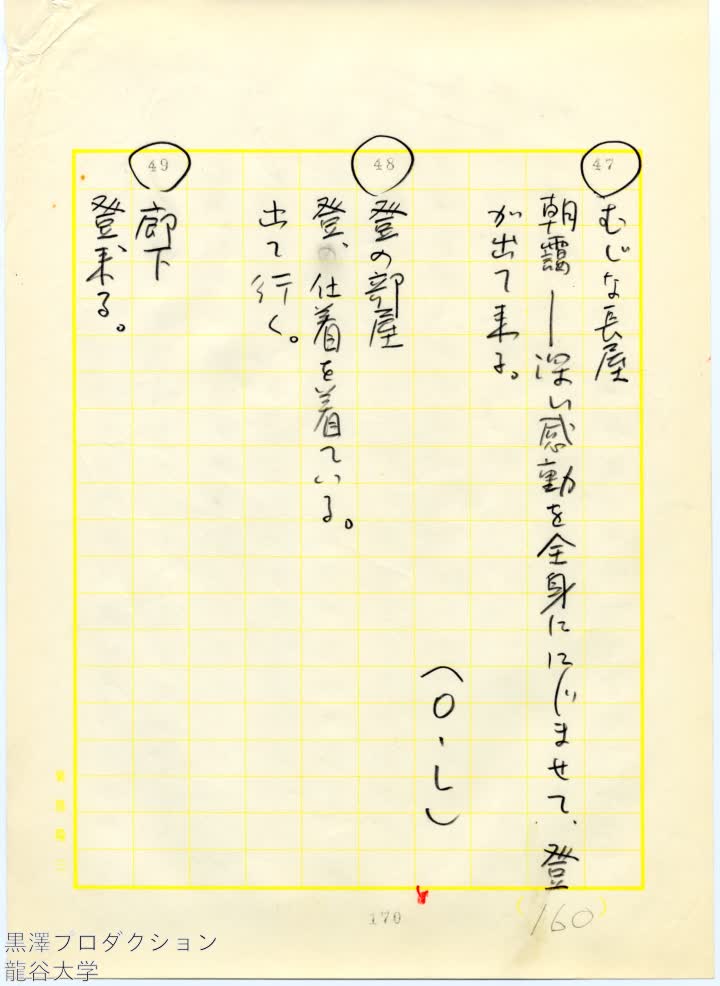 47
むじな長屋
朝靄――深い感動を全身ににじませて、登
が出て来る。
(O・L)
48
登の部屋
登、仕着を着ている。
出て行く。
49
廊下
登、来る。
170
(160)
黒澤プロダクション
龍谷大学